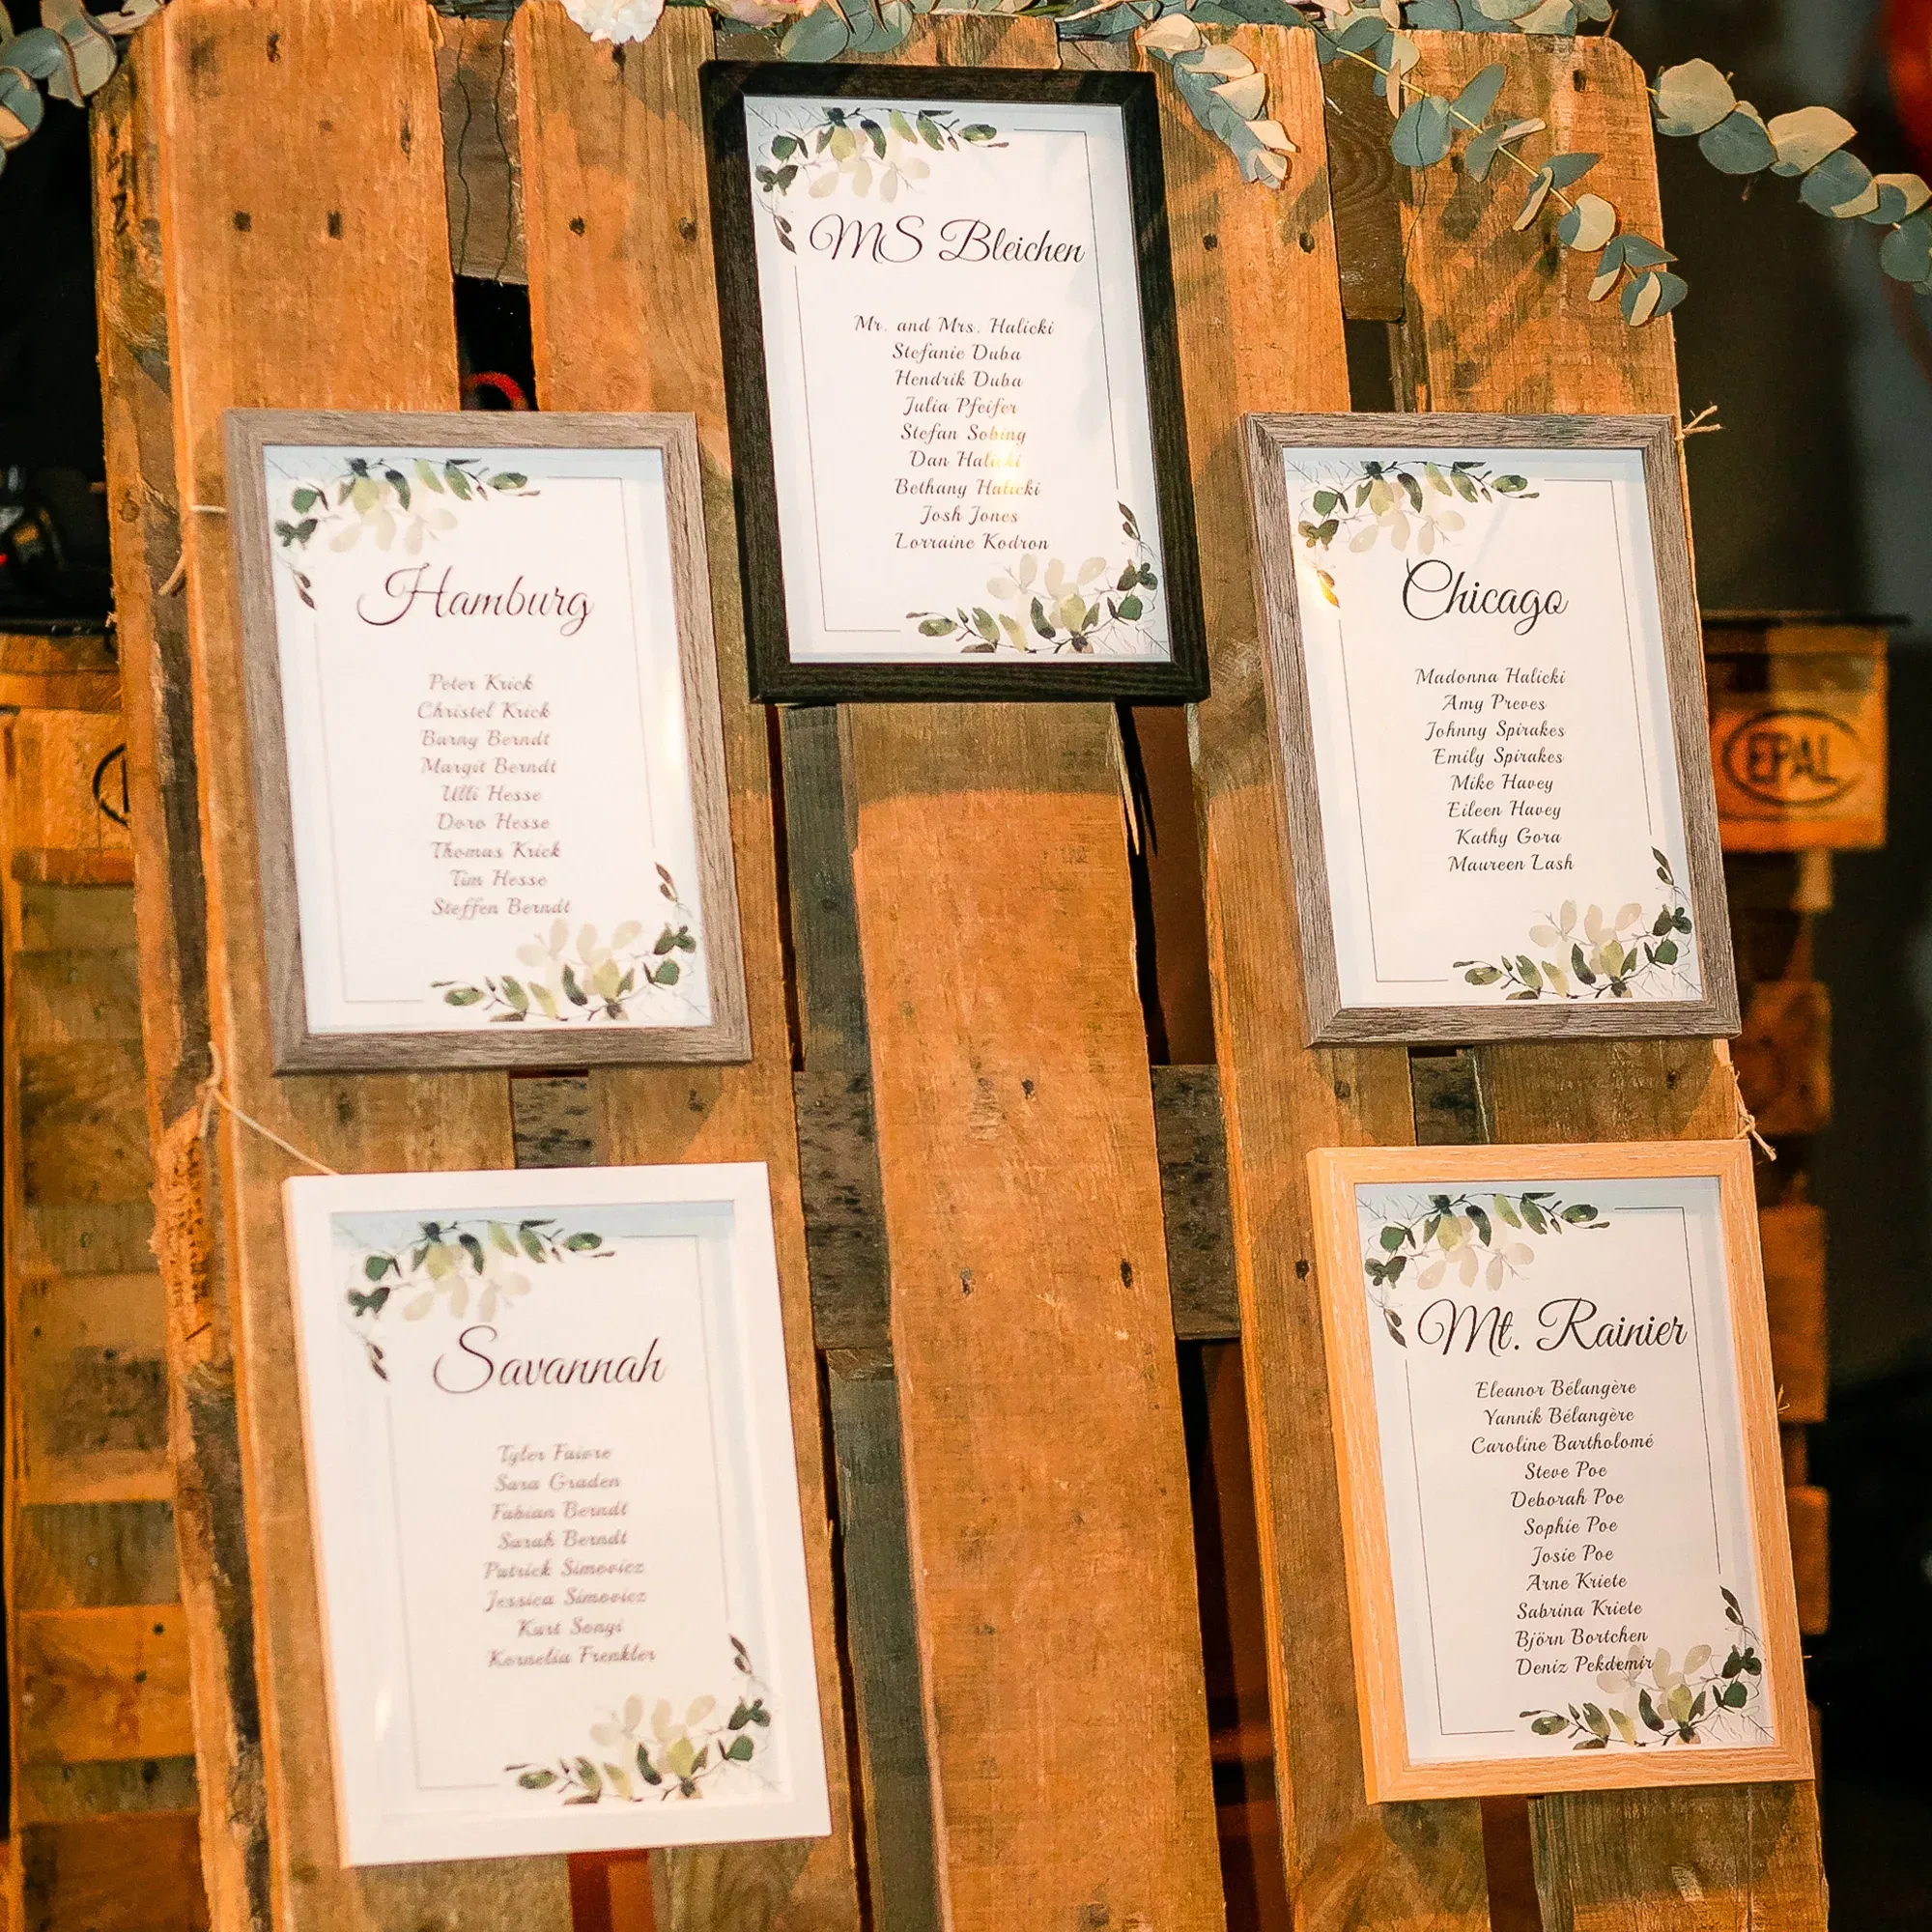 MS Bleichen
Mr. and Mrs. Halicki
Stefanie Duba
Hendrik Duba
Julia Pfeifer
Stefan Sobing
Dan Halicki
Bethany Halicki
Josh Jones
Lorraine Kodron
Hamburg
Peter Krick
Christel Krick
Burny Berndt
Margit Berndt
Ulli Hesse
Doro Hesse
Thomas Krick
Tim Hesse
Steffen Berndt
Chicago
Madonna Halicki
Amy Preves
Johnny Spirakes
Emily Spirakes
Mike Havey
Eileen Havey
Kathy Gora
Maureen Lash
EPAL
Savannah
Tyler Faivre
Sara Graden
Fabian Berndt
Sarah Berndt
Patrick Simovicz
Jessica Simovicz
Kurt Songi
Kornelia Frenkler
Mt. Rainier
Eleanor Bélangère
Yannik Bélangère
Caroline Bartholomé
Steve Poe
Deborah Poe
Sophie Poe
Josie Poe
Arne Kriete
Sabrina Kriete
Björn Bortchen
Deniz Pekdemir